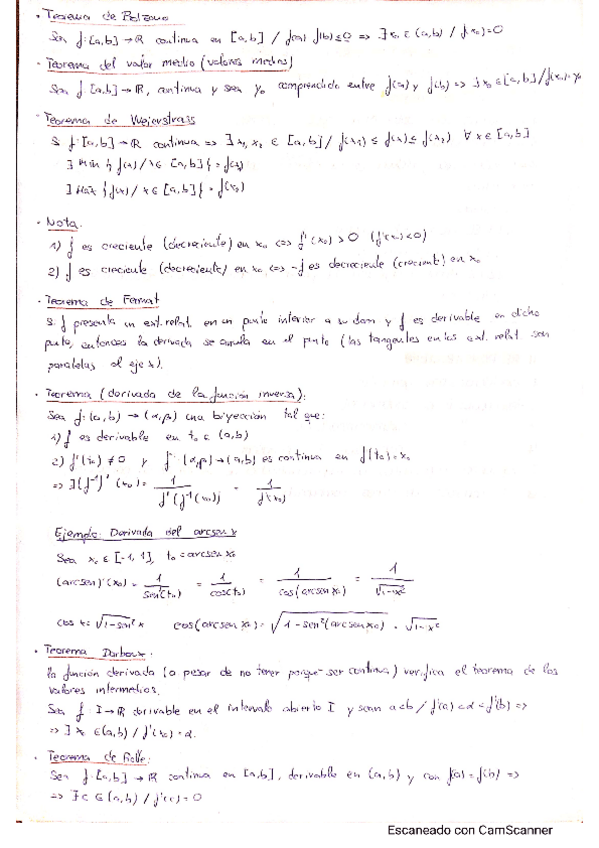 · Teorema de Bolzano
Sea f: [a,b] → R continua en [a,b] / f(a) f(b) ≤ 0 => ∃ x₀ ∈ (a,b) / f(x₀)=0
· Teorema del valor medio (valores medios)
Sea f: [a,b] → R, continua y sea y₀ comprendido entre f(a) y f(b) => ∃ x₀ ∈ [a,b] / f(x₀)=y₀
· Teorema de Weierstrass
Si f: [a,b] → R continua => ∃ x₁, x₂ ∈ [a,b] / f(x₁) ≤ f(x) ≤ f(x₂) ∀ x ∈ [a,b]
∃ Min { f(x) / x ∈ [a,b] } = f(x₁)
∃ Max { f(x) / x ∈ [a,b] } = f(x₂)
· Nota.
1) f es creciente (decreciente) en x₀ <=> f'(x₀) > 0 (f'(x₀) < 0)
2) f es creciente (decreciente) en x₀ <=> -f es decreciente (creciente) en x₀
· Teorema de Fermat
Si f presenta un ext. relat. en un punto interior a su dom y f es derivable en dicho
punto, entonces la derivada se anula en el punto (las tangentes en los ext. relat. son
paralelas al eje x).
· Teorema (derivada de la función inversa):
Sea f: (a,b) → (α,β) una biyección tal que:
1) f es derivable en t₀ ∈ (a,b)
2) f'(t₀) ≠ 0 y f⁻¹: (α,β) → (a,b) es continua en f(t₀)=x₀
=> ∃ (f⁻¹)'(x₀) = 1 / f'(f⁻¹(x₀)) = 1 / f'(t₀)
Ejemplo: Derivada del arcsen x
Sea x₀ ∈ [-1, 1], t₀ = arcsen x₀
(arcsen)'(x₀) = 1 / sen'(t₀) = 1 / cos(t₀) = 1 / cos(arcsen x₀) = 1 / √1-x²
cos x = √1-sen² x cos(arcsen x₀) = √1-sen²(arcsen x₀) = √1-x²
· Teorema Darboux.
La función derivada (a pesar de no tener porque ser continua) verifica el teorema de los
valores intermedios.
Sea f: I → R derivable en el intervalo abierto I y sean a<b / f'(a) < α < f'(b) =>
=> ∃ x₀ ∈ (a,b) / f'(x₀) = α.
· Teorema de Rolle:
Sea f: [a,b] → R continua en [a,b], derivable en (a,b) y con f(a) = f(b) =>
=> ∃ c ∈ (a,b) / f'(c) = 0
Escaneado con CamScanner